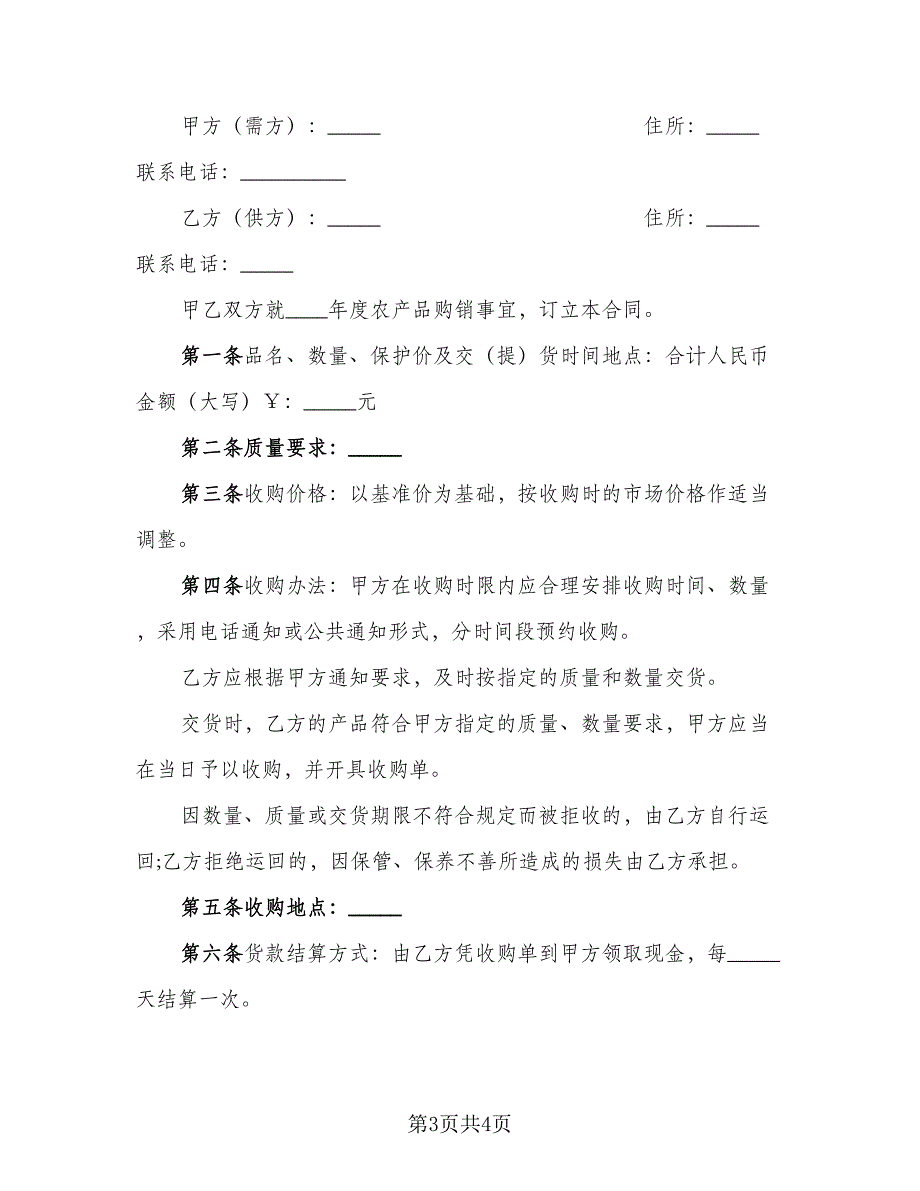 甲方（需方）：_____ 住所：_____
联系电话：__________
乙方（供方）：_____ 住所：_____
联系电话：_____
甲乙双方就____年度农产品购销事宜，订立本合同。
第一条品名、数量、保护价及交（提）货时间地点：合计人民币
金额（大写）￥：_____元
第二条质量要求：_____
第三条收购价格：以基准价为基础，按收购时的市场价格作适当
调整。
第四条收购办法：甲方在收购时限内应合理安排收购时间、数量
，采用电话通知或公共通知形式，分时间段预约收购。
乙方应根据甲方通知要求，及时按指定的质量和数量交货。
交货时，乙方的产品符合甲方指定的质量、数量要求，甲方应当
在当日予以收购，并开具收购单。
因数量、质量或交货期限不符合规定而被拒收的，由乙方自行运
回;乙方拒绝运回的，因保管、保养不善所造成的损失由乙方承担。
第五条收购地点：_____
第六条货款结算方式：由乙方凭收购单到甲方领取现金，每_____
天结算一次。
第3页共4页